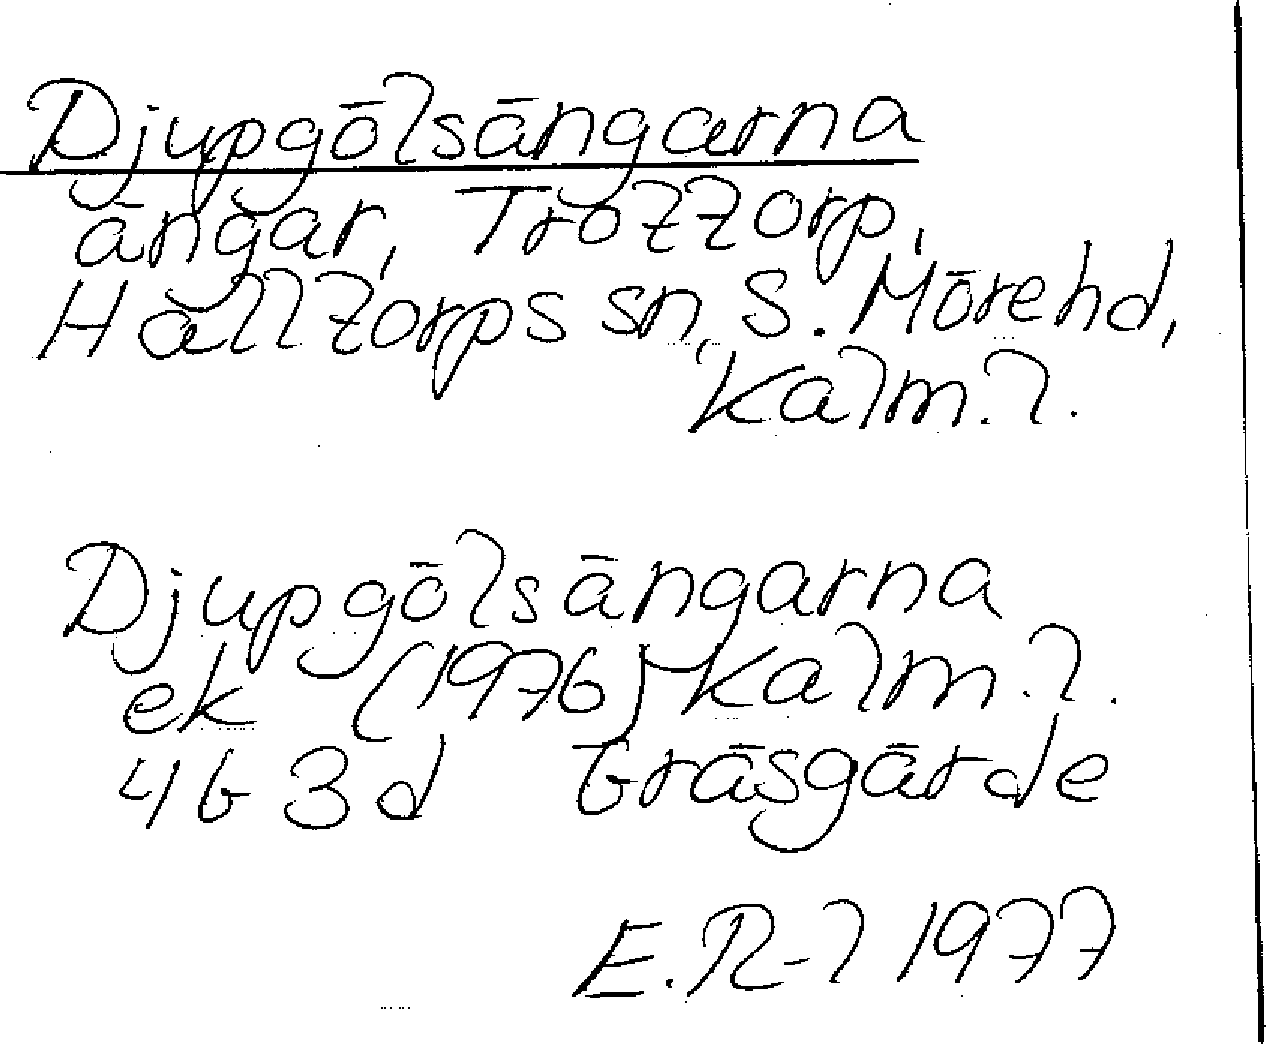 Djupgölsängarna
ängar, Tröttorp,
Halltorps sn, S. Möre hd,
Kalm. l.
Djupgölsängarna
ek (1976) Kalm. l.
4G 3d Gräsgärde
E. R-l 1977